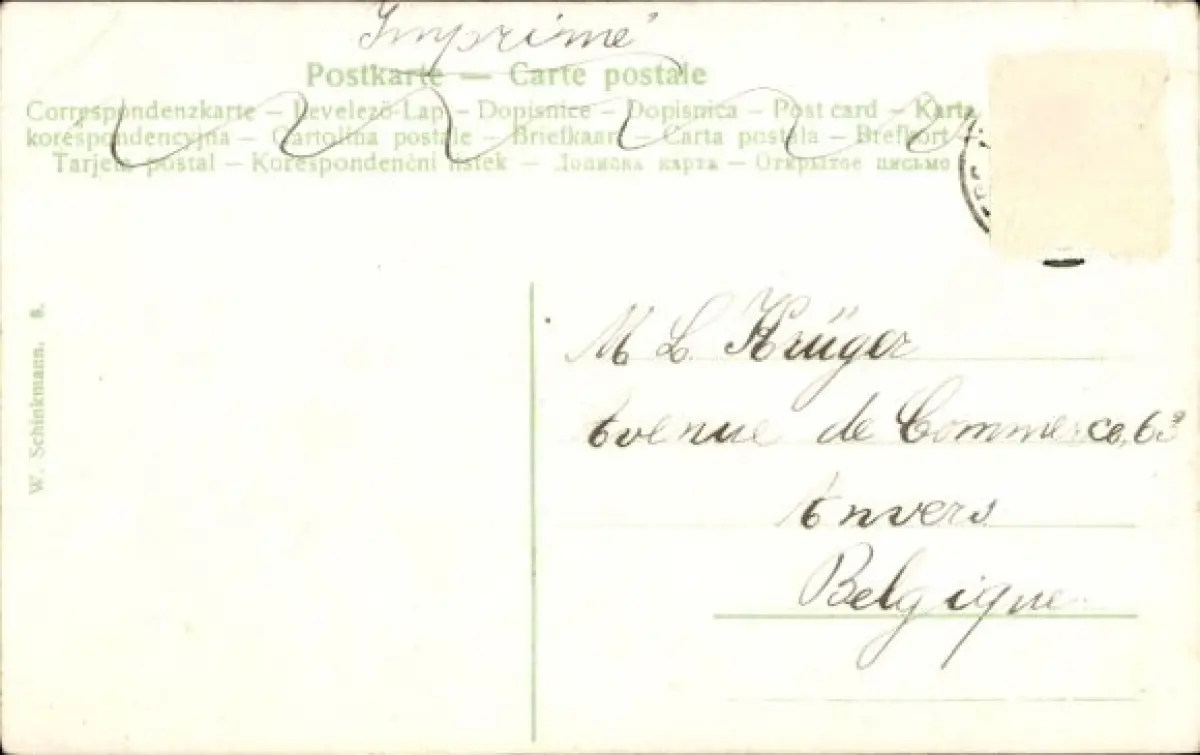 Imprimé
Postkarte — Carte postale
Correspondenzkarte – Levelező-Lap – Dopisnice – Dopisnica – Post card – Karta
korespondencyjna – Cartolina postale – Briefkaart – Carta postala – Brefkort
Tarjeta postal – Korespondenční listek – Дописна карта – Открытое письмо
W. Schinkmann. 8.
M L. Krüger
Avenue de Commerce, 63
Anvers
Belgique